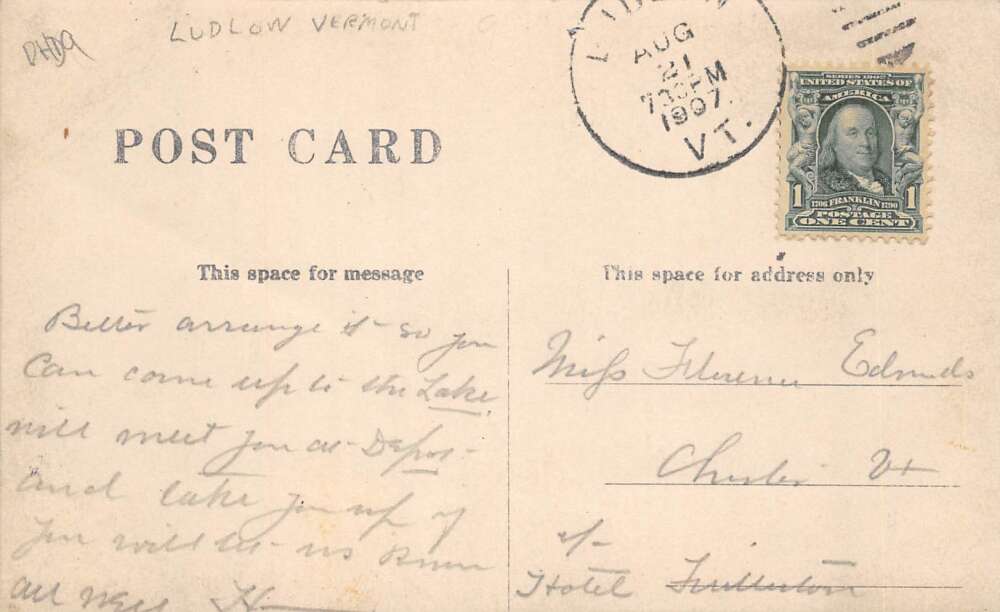 LUDLOW VERMONT
LUDLOW
AUG
21
730PM
1907
VT.
POST CARD
SERIES 1902
UNITED STATES OF
AMERICA
1 1
1706 FRANKLIN 1790
POSTAGE
ONE CENT
This space for message
This space for address only
Better arrange it so you
Can come up to the Lake,
will meet you at Depot
and take you up if
you will let us know
all well H
Miss Florence Edmunds
Chester Vt
c/-
Hotel Fullerton